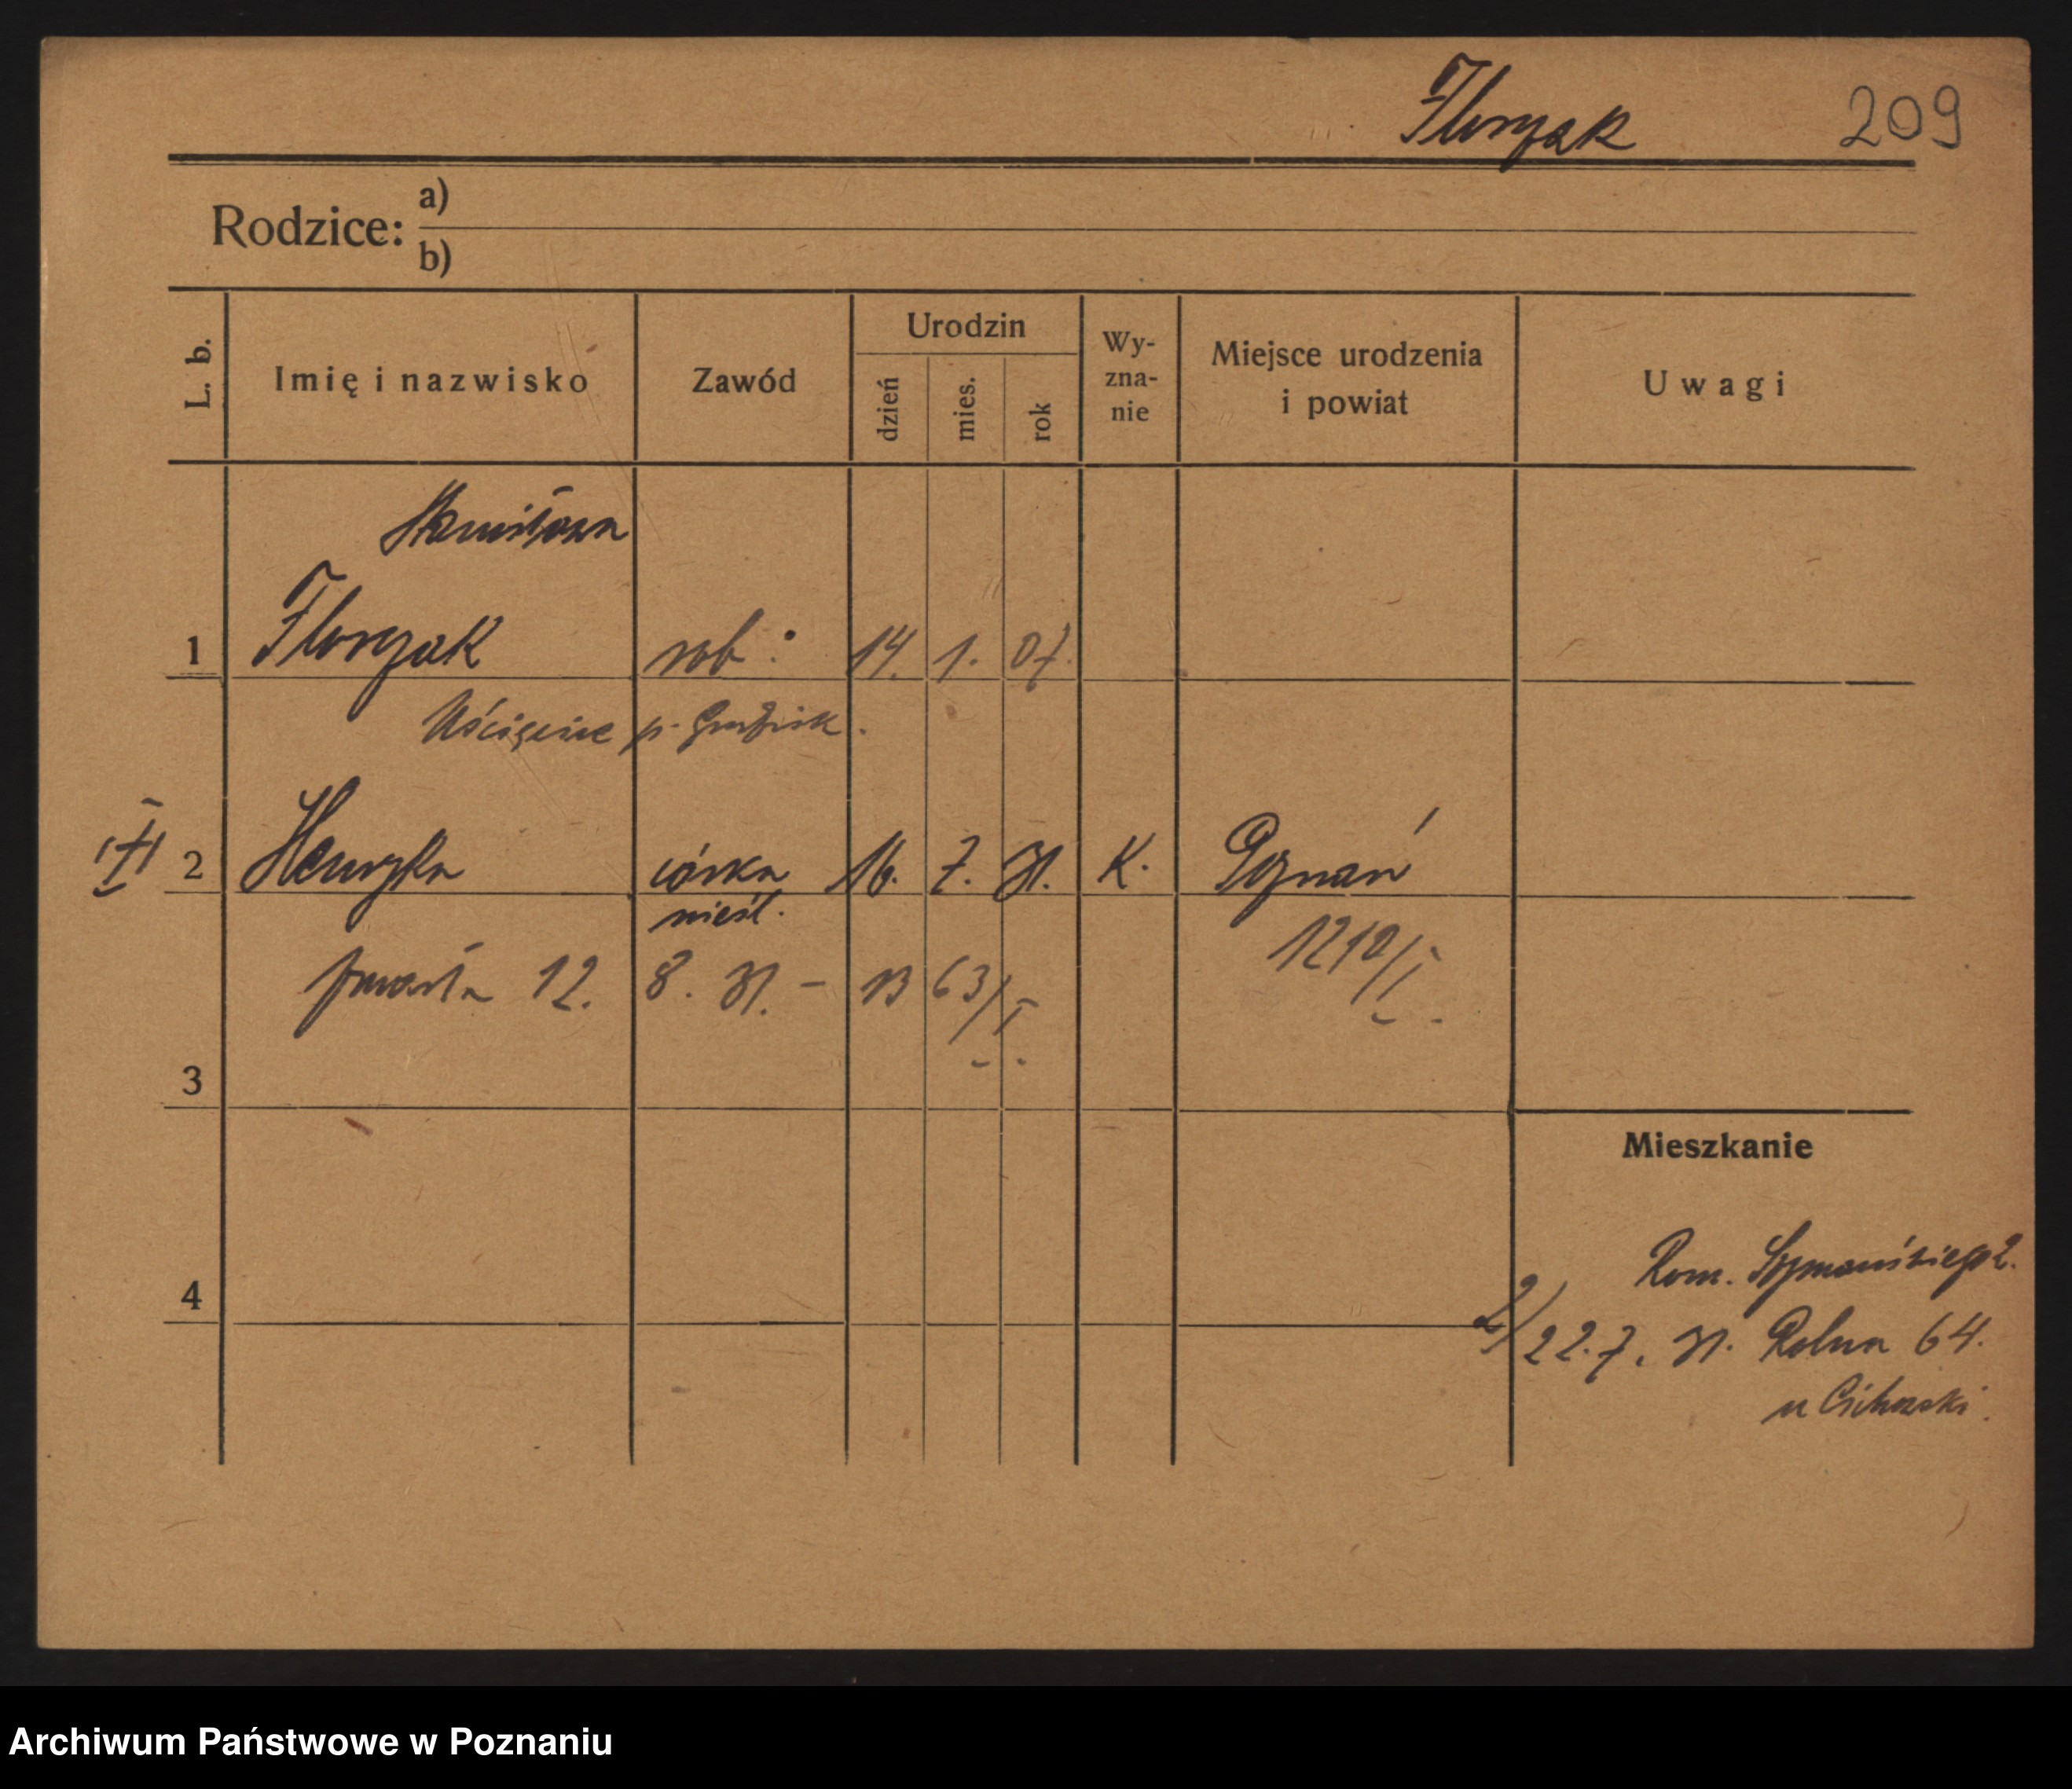 Floryak 209
Rodzice: a)
b)
L. b. Imię i nazwisko Zawód Urodzin dzień mies. rok Wy-zna-nie Miejsce urodzenia i powiat Uwagi
Stanisława
1 Floryak rob: 14. 1. 07.
Uścięcice p. Grodzisk.
2 Henryka córka 16. 7. 31. K. Poznań
nieśl.
1210/I
zmarła 12. 8. 31. – 1363/I
3
Mieszkanie
Rom. Szymańskiego 2.
4
2/ 22.7.31. Rolna 64.
u Cichocki.
Archiwum Państwowe w Poznaniu